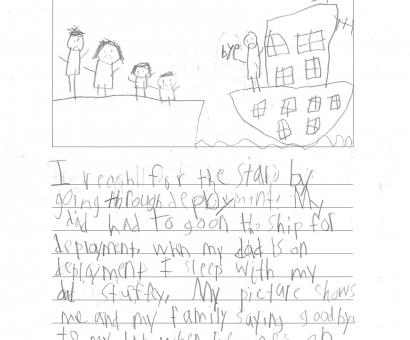 bye
I reach for the stars by
going through deployment. My
dad had to go on the ship for
deployment. when my dad is on
deployment I sleep with my
dad stuffy. My picture shows
me and my family saying goodbye
to my dad when he on